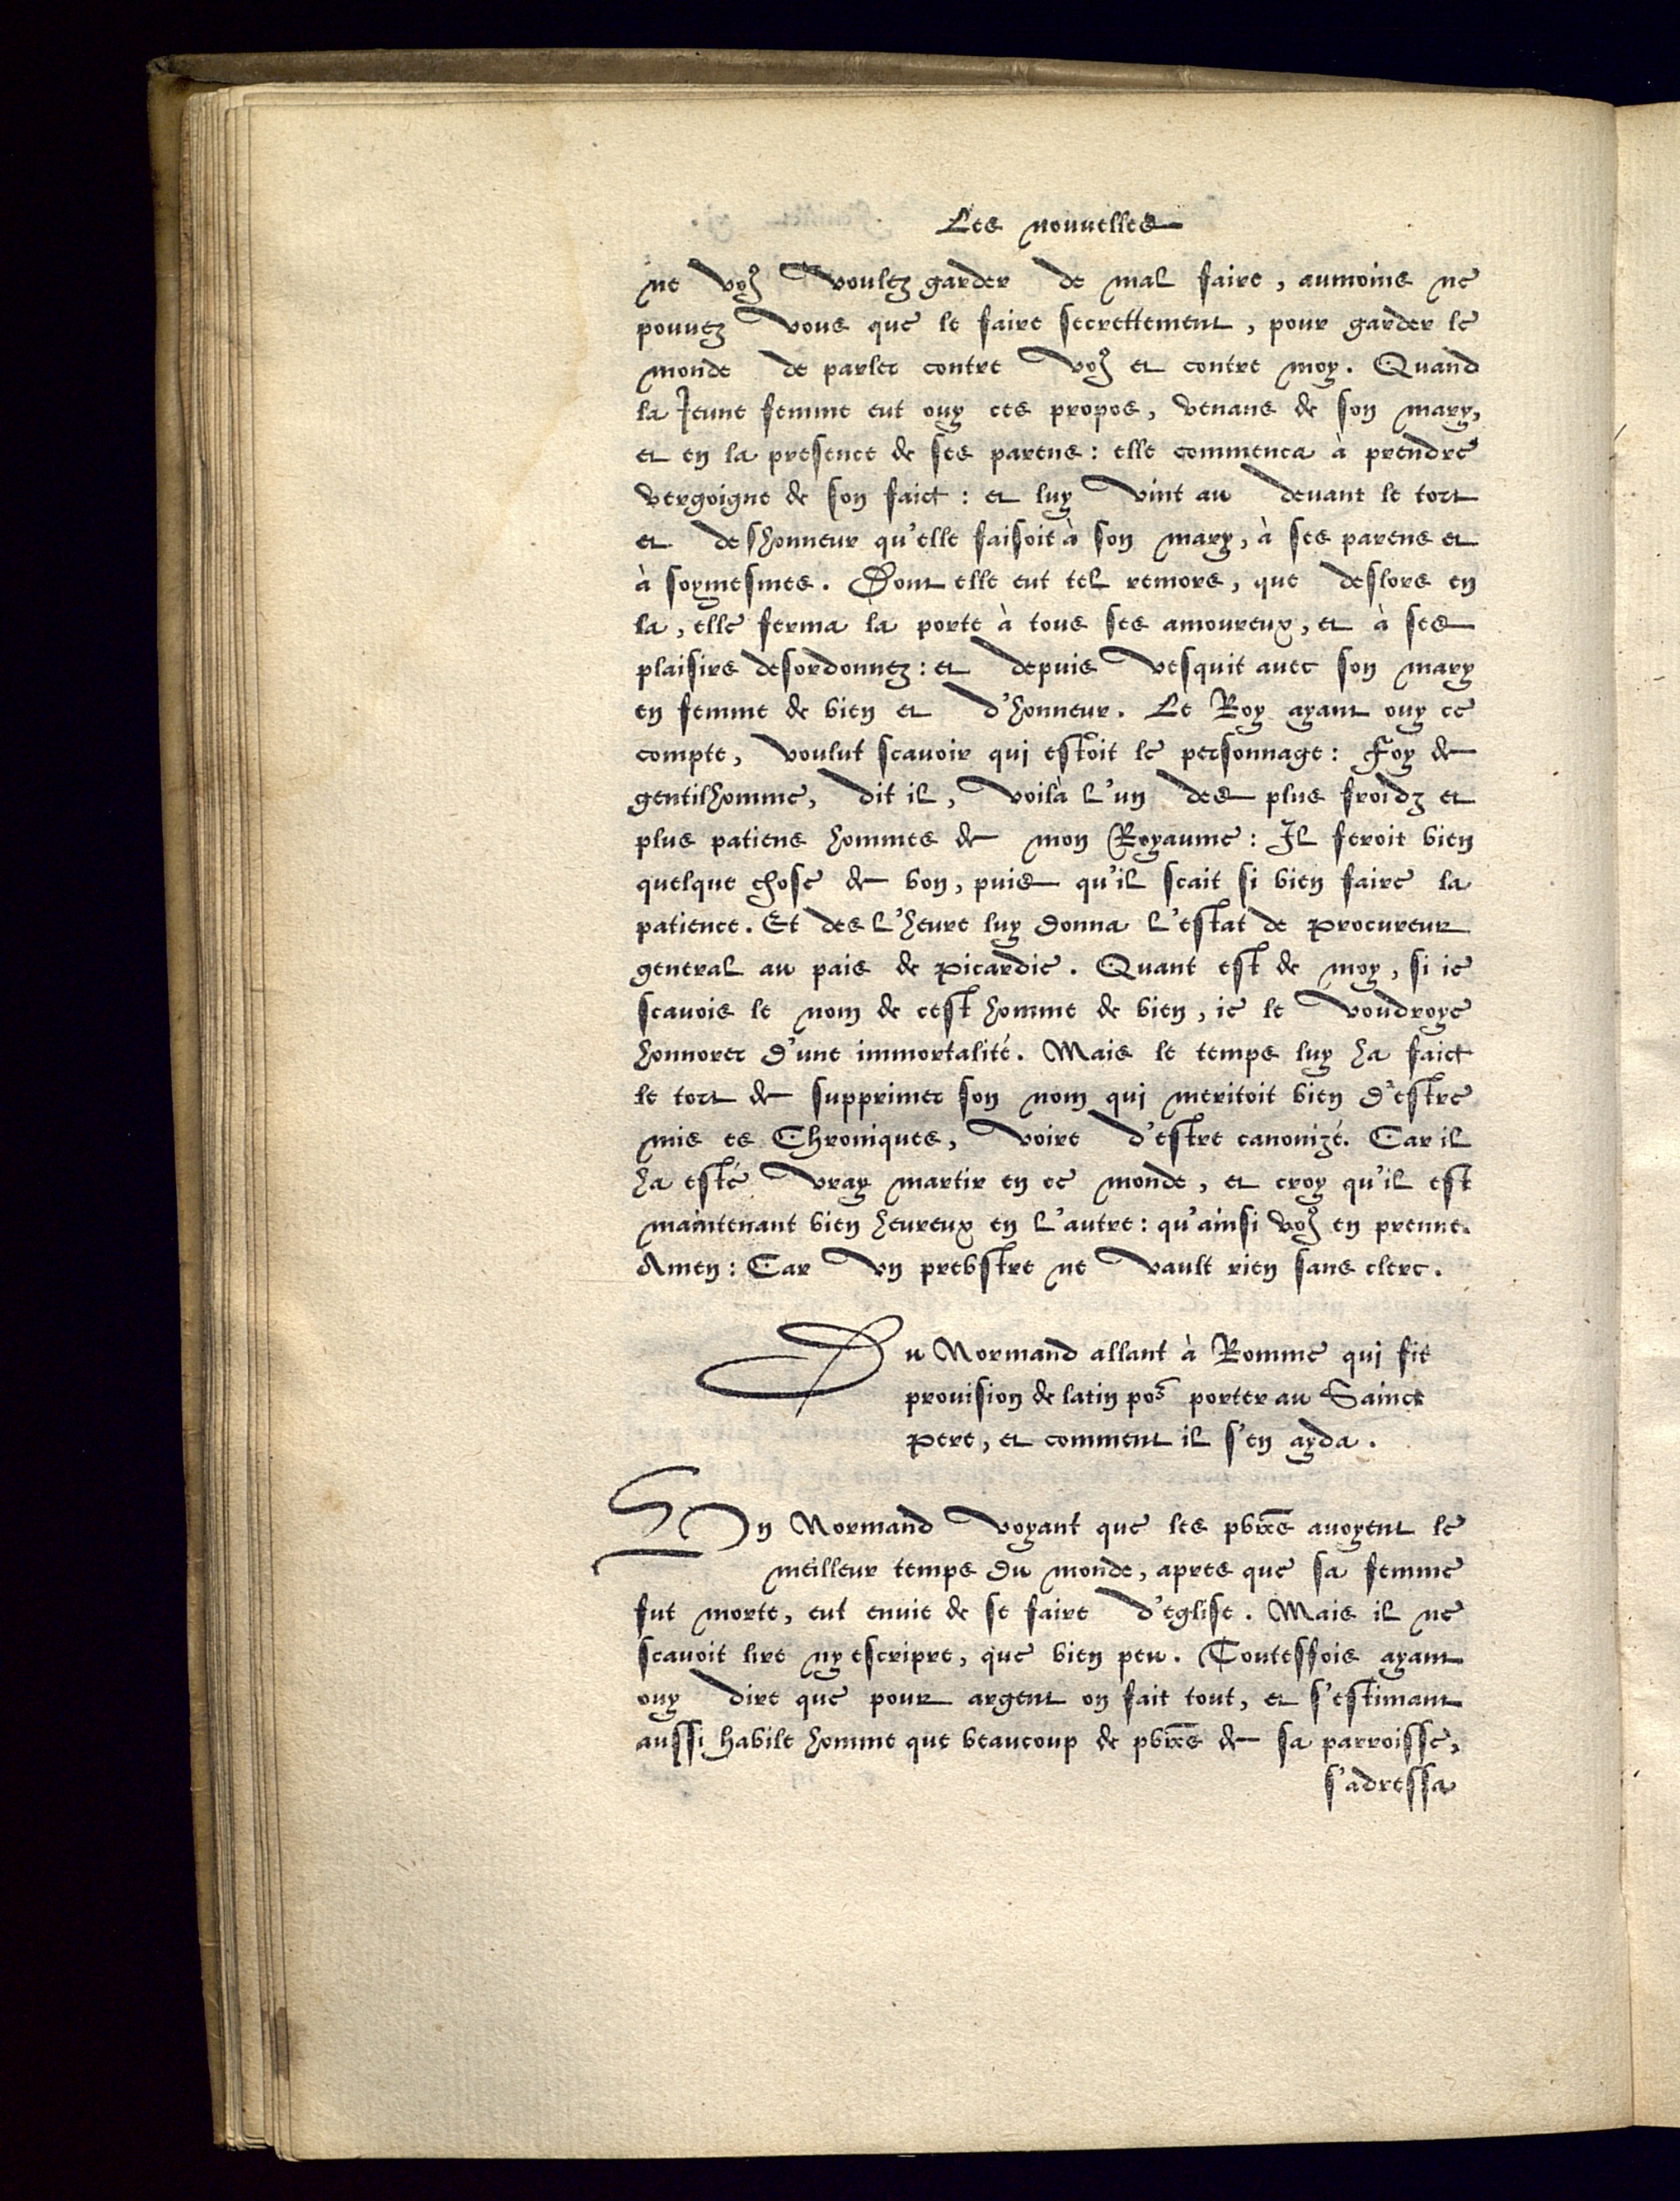 Les nouuelles
ne voꝰ voulez garder de mal faire, aumoins ne
pouuez vous que le faire secrettement, pour garder le
monde de parler contre voꝰ et contre moy. Quand
la Jeune femme eut ouy ces propos, venans de son mary,
et en la presence de ses parens: elle commenca à prendre
vergoigne de son faict: et luy vint au deuant le tort
et deshonneur qu'elle faisoit à son mary, à ses parens et
à soymesmes. Dont elle eut tel remors, que deslors en
la, elle ferma la porte à tous ses amoureux, et à ses
plaisirs desordonnez: et depuis vesquit auec son mary
en femme de bien et d'honneur. Le Roy ayant ouy ce
compte, voulut scauoir qui estoit le personnage: Foy de
gentilhomme, dit il, voilà l'un des plus froidz et
plus patiens hommes de mon Royaume: Il feroit bien
quelque chose de bon, puis qu'il scait si bien faire la
patience. Et des l'heure luy donna l'estat de procureur
general au pais de picardie. Quant est de moy, si ie
scauois le nom de cest homme de bien, ie le voudroye
honnorer d'une immortalité. Mais le temps luy ha faict
le tort de supprimer son nom qui meritoit bien d'estre
mis es Chroniques, voire d'estre canonizé. Car il
ha esté vray martir en ce monde, et croy qu'il est
maintenant bien heureux en l'autre: qu'ainsi voꝰ en prenne.
Amen: Car vn prebstre ne vault rien sans clerc.
Du Normand allant à Romme qui fit
prouision de latin poᷣ porter au Sainct
pere, et comment il s'en ayda.
Vn Normand voyant que les pb̅res auoyent le
meilleur temps du monde, apres que sa femme
fut morte, eut enuie de se faire d'eglise. Mais il ne
scauoit lire ny escripre, que bien peu. Toutesfois ayant
ouy dire que pour argent on fait tout, et s'estimant
aussi habile homme que beaucoup de pb̅res de sa parroisse,
s'adressa